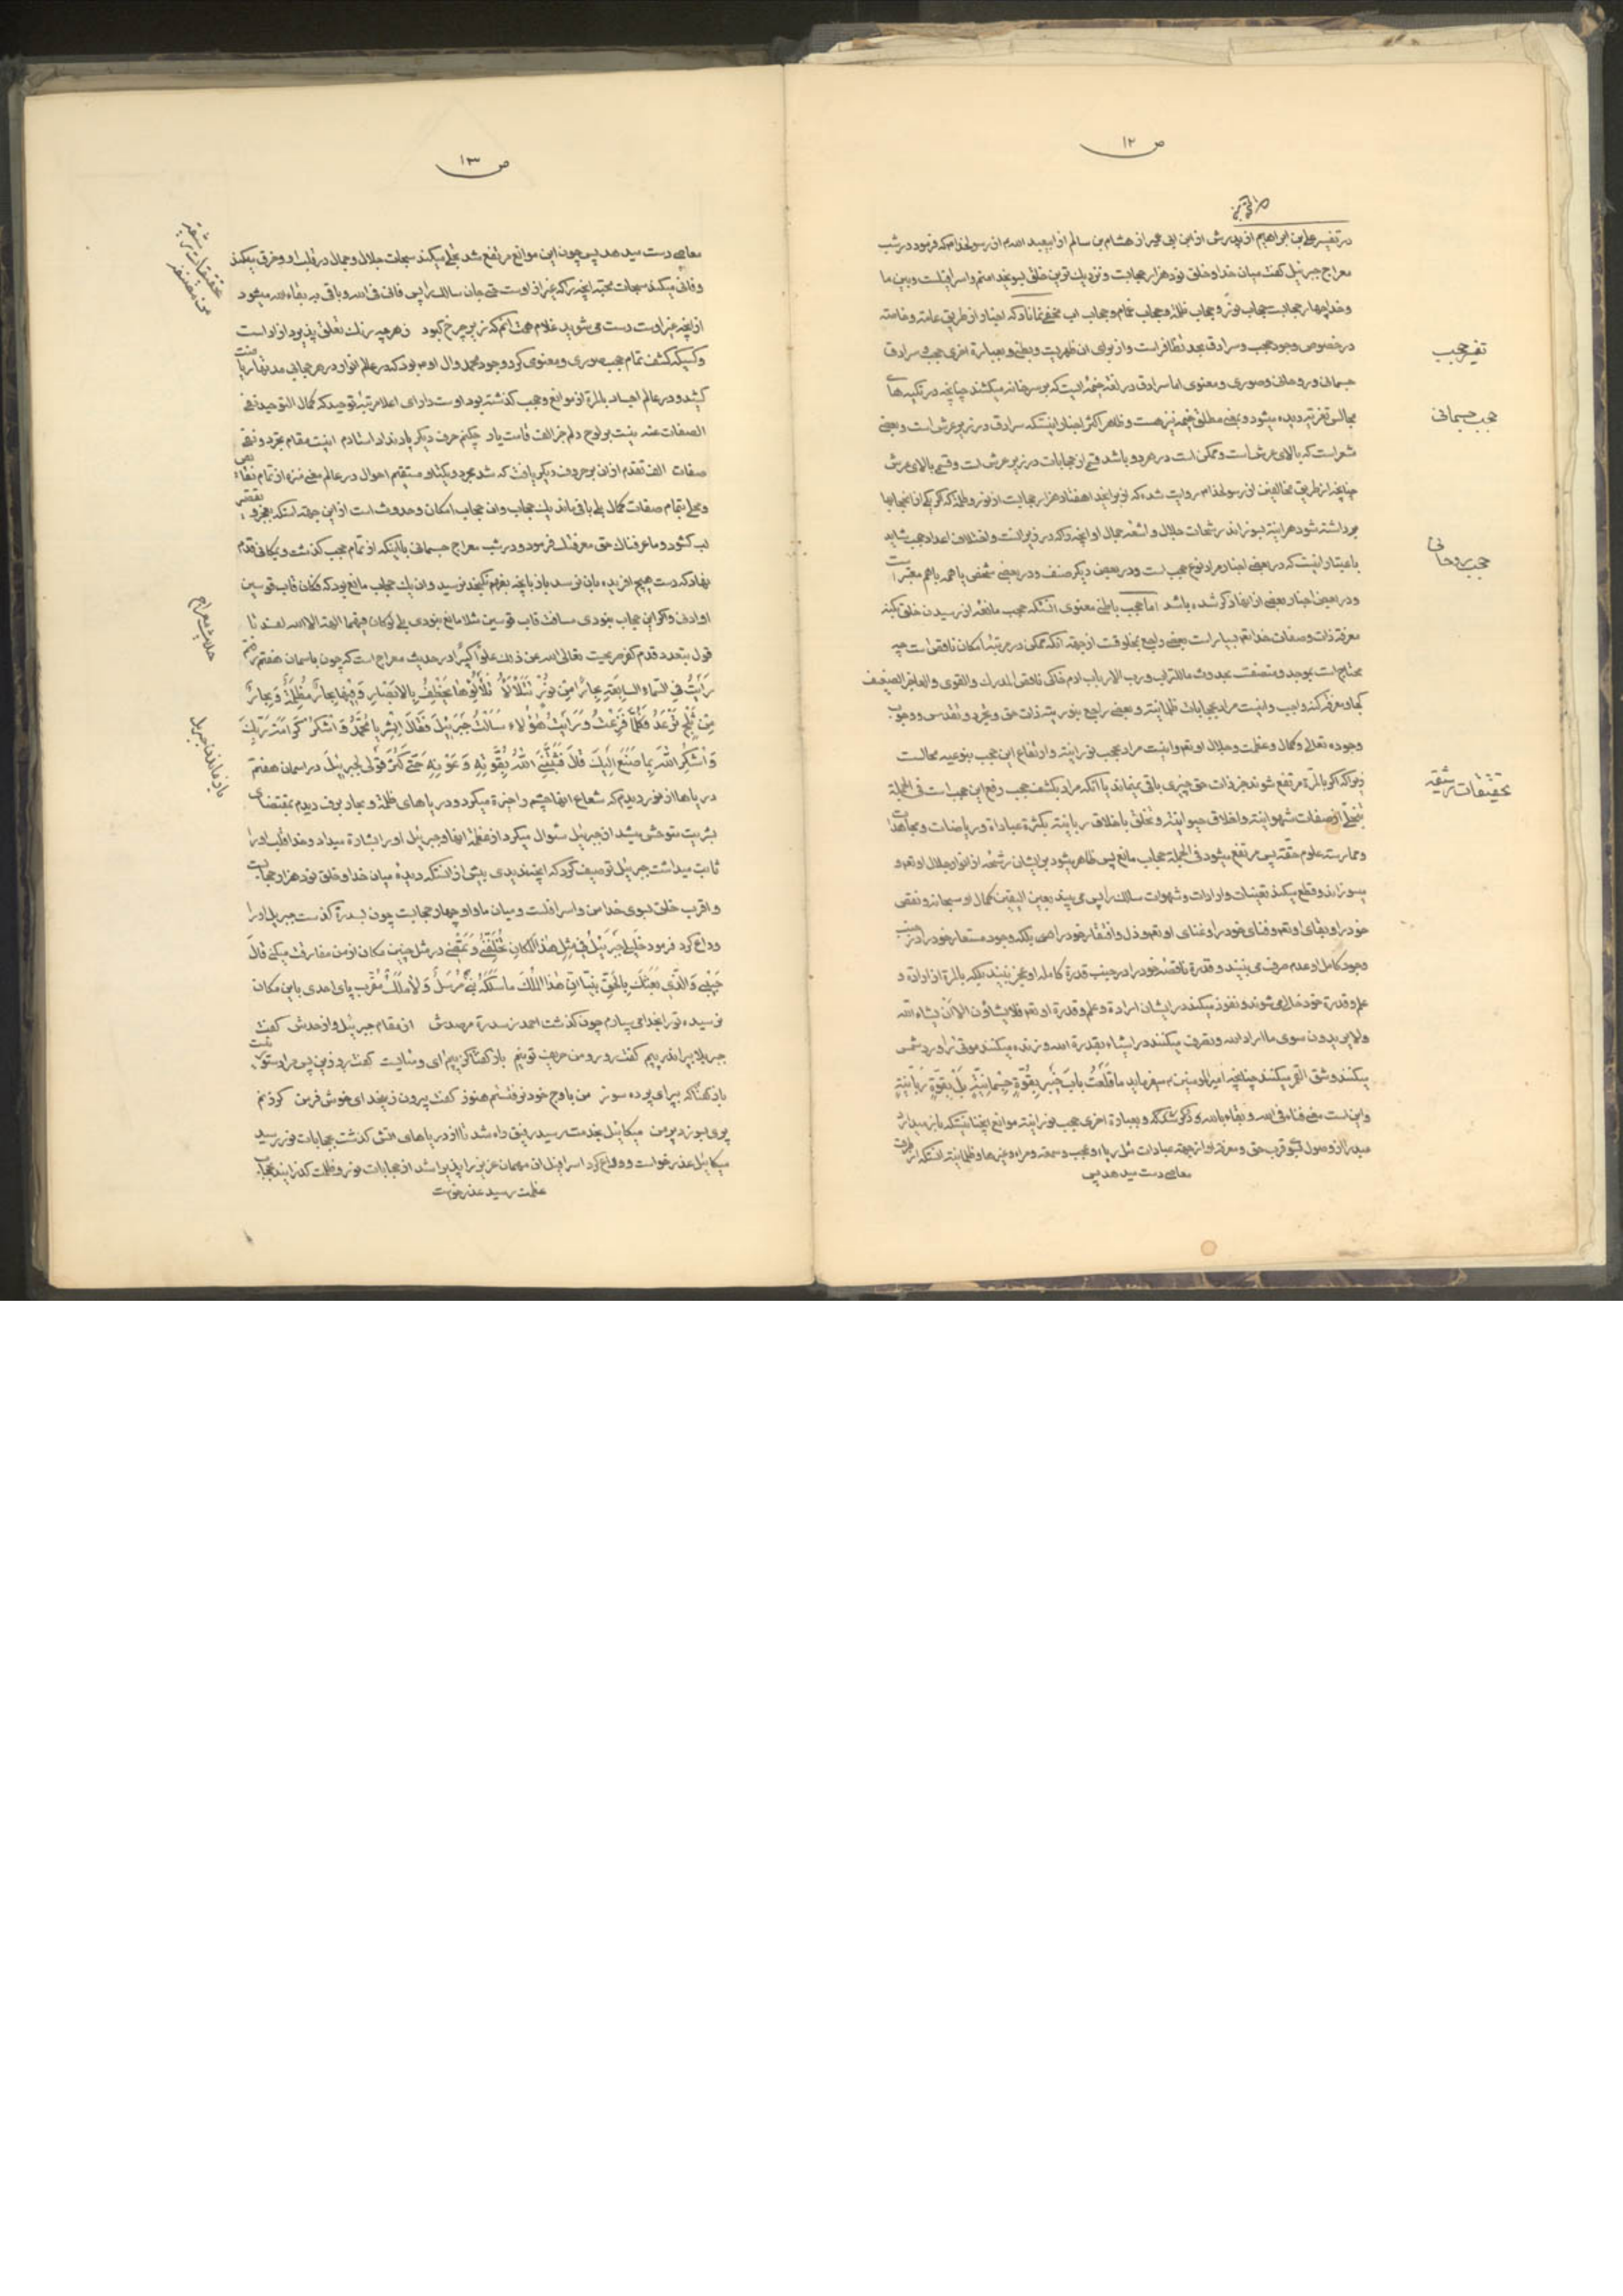 ص ۱۲
در تفسیر علی بن ابراهیم از پدرش از ابن ابی عمیر از هشام بن سالم از ابیعبد الله م از رسولخدا م که فرمود در شب
معراج جبرئیل گفت میان خدا و خلق نود هزار حجابست و نزدیك ترین خلق بسوی خدا منم و اسرافیلست و بین ما
و خدا چهار حجابست حجاب نور و حجاب ظلمة و حجاب غمام و حجاب اب مخفی نماناد که اخبار از طریق عامته و خاصته
در خصوص وجود حجب و سرادق بحد تظافر است و از برای ان ظهریست و بطنی و بعبارة اخری حجب و سرادق
تفسیر حجب
جسمانی و روحانی و صوری و معنوی اما سرادق در لغة خیمه ایست که بر سر خانه میکشند چنانچه در تکیه های
مجالس تعزیه دیده میشود و بمعنی مطلق خیمه نیز هست و ظاهر اکثر اخبار اینستکه سرادق در زیر عرش است و بعضی
حجب جسمانی
مشعر است که بالای عرش است و ممکن است در هر دو باشد قسمی از حجابات در زیر عرش است و قسمی بالای عرش
چنانچه از طریق مخالفین از رسولخدا م روایت شده که
برداشته شود هر اینه بسوزاند سبحات جلال و اشعه جمال او انچه را که در زیر انست و اختلاف اعداد حجب شاید
باعتبار اینست که در بعضی اخبار مراد نوع حجب است و در بعضی دیگر صنف و در بعضی شخص یا همه با هم معتبر است
حجب روحانی
و در بعضی اخبار بعضی از انها ذکر شده باشد اما حجب باطنی معنوی انستکه حجب مانعه از رسیدن خلق بکنه
معرفة ذات و صفات خدا تعم بسیار است بعضی راجع بمخلوقست از جهته انکه ممکن در مرتبه امکان ناقص است چه
محتاج است بموجد و متصفست بحدوث ما للتراب و رب الارباب ادم خاکی ناقص المدرك و القوی و العاجز الضعیف
کجا و معرفة کنه واجب و اینست مراد بحجابات ظلمانیة و بعضی راجع بنوریته ذات حق و تجرد و تقدس و وجوب
وجود تعالی و کمال و عظمت و جلال او تعم و اینست مراد بحجب نورانیته و ارتفاع این حجب بنوعیه محالست
تحقیقات رشیقه
زیرا که اگر بالمرة مرتفع شوند جز ذات حق چیزی باقی نمیماند یا انکه مراد بکشف حجب رفع این حجب است فی الجملة
بتخلی از صفات شهوانیته و اخلاق حیوانیته و تخلق باخلاق ربانیته بکثرة عبادات و ریاضات و مجاهدات
و ممارسته علوم حقته پس مرتفع میشود فی الجملة حجاب مانع پس ظاهر میشود بر ایشان رشحه از انوار جلال او تعم و
میسوزاند و قطع میکند تعینات و ارادات و شهوات سالك را پس می بیند بعین الیقین کمال او سبحانه و نقص
خود را و بقای او تعم و فنای خود را و غنای او تعم و ذل و افتقار خود را حتی بلکه وجود مستعار خود را در جنب
وجود کامل او عدم صرف می بیند و قدرة ناقصه خود را در جنب قدرة کامله او عجز ببیند بلکه بالمرة از اراده و
علم و قدرة خود خالی می شوند و نفوذ میکند در ایشان ارادة و علم و قدرة او تعم فلا یشاؤن الا ان یشاء الله
ولا یریدون سوی ما اراد الله و تصرف میکنند در اشیاء بقدرة الله و زنده میکنند موتی را و رد شمس
میکنند و شق القمر میکنند چنانچه امیر المومنین م میفرماید ما قلعت باب خیبر بقوة جسمانیة بل بقوة ربانیة
و اینست معنی فناء فی الله و بقاء بالله که ذکر شد که و بعبارة اخری حجب نورانیته موانع انچنانیستکه باز میدارد
عبد را از وصول بسوی قرب حق و معرفة او از جهته عبادات مثل ریاء و عجب و سمعه و مراء و غیرها و ظلمانیته انستکه از طرف
معاصی دست میدهد پس
ص ۱۳
معاصی دست میدهد پس چون این موانع مرتفع شد تجلی میکند سبحات جلال و جمال در قلب او و غرق میکند
و فانی میکند سبحات محبته انچه را که غیر از اوست حتی جان سالك را پس فانی فی الله و باقی به بقاء الله میشود
از انچه غیر اوست دست می شوید غلام همت انم که زیر چرخ کبود ز هر چه رنك تعلق پذیرد ازاد است
و کسیکه کشف تمام حجب صوری و معنوی کرد وجود محمد و ال او م بود که در عالم انوار در هر حجابی مدتها ریاضت
کشید و در عالم اجساد بالمرة از موانع و حجب گذشته بود اوست دارای اعلا مرتبه توحید که کمال التوحید نفی
الصفات عنه نیست بر لوح دلم جز الف قامت یار چکنم حرف دیگر یاد نداد استادم اینست مقام تجرد و نفی
صفات الف تقدم از ان بر حروف دیگر یافت که شد مجرد و یکتا و مستقیم احوال در عالم معنی منزه از تمام نقائص
و محلی بتمام صفات کمال بلی باقی ماند یك حجاب و ان حجاب امکان و حدوث است از این جهته استکه بعجز و نقص
لب گشود و ما عرفناك حق معرفتك فرمود و در شب معراج جسمانی با اینکه از تمام حجب گذشت و بمکانی قدم
نهاد که دست هیچ افریده بان نرسد باز بانچه بفهم نگنجد نرسید و ان یك حجاب مانع بود که فکان قاب قوسین
او ادنی و اگر این حجاب نبودی مسافت قاب قوسین مثلا مانع نبودی بلی لو کان فیهما الهة الا الله لفسدتا
حدیث معراج
قول بتعدد قدم کفر صریحست تعالی الله عن ذلك علوا کبیرا در حدیث معراج است که چون باسمان هفتم رفتم
رأیت فی السماء السابعة بحارا من نور تتلألأ تلألؤها یخطف بالابصار و فیها بحار مظلمة و بحار
من ثلج ترعد فکلما فزعت و رأیت هؤلاء سألت جبرئیل فقال ابشر یا محمد و اشکر کرامة ربك
و اشکر الله بما صنع الیك قال فثبتنی الله بقوته و عونه حتی کثر قولی لجبرئیل در اسمان هفتم
باز ماندن جبرئیل
دریاها از نور دیدم که شعاع انها چشم را خیره میکرد و دریاهای ظلمة و بحار برف دیدم بمقتضای
بشریت متوحش میشد از جبرئیل سئوال میکرد از عظمة انها و جبرئیل او را بشارة میداد و خدا قلب او را
ثابت میداشت جبرئیل توصیف کرد که اینچه ندیدی بیش از انستکه دیده میان خدا و خلق نود هزار حجابست
و اقرب خلق بسوی خدا من و اسرافیلست و میان ما و او چهار حجابست چون بسدرة گذشت جبرئیل او را
وداع کرد فرمود خلیلی جبرئیل فی مثل هذا المکان تخلفنی و تمضی در مثل چنین مکان از من مفارقت میکنی قال
حبیبی و الذی بعثك بالحق نبیا ان هذا الملك ما سلکه نبی مرسل و لا ملك مقرب پای احدی باین مکان
نرسیده تو را بخدا می سپارم چون گذشت احمد ز سدرة مرصدش از مقام جبرئیل و از حدش گفت
جبریلا بپر اندر پیم گفت رو رو من حریف تو نیم باز گفتا کز پیم ای و مایست گفت رو زین پس مرا دستور نیست
باز گفتا که بپر ای پرده سوز من باوج خود نرفتستم هنوز گفت بیرون ز ینحد ای خوش فر من گر زنم
پری بسوزد پر من میکائیل بخدمت رسید رفیق راه شد تا از دریاهای اتش گذشت بحجابات نور رسید
میکائیل عذر خواست و وداع کرد اسرافیل ان مهمان عزیز را پذیرا شد از حجابات نور و ظلمت گذرانید بحجاب
عظمت رسید عذر خواست